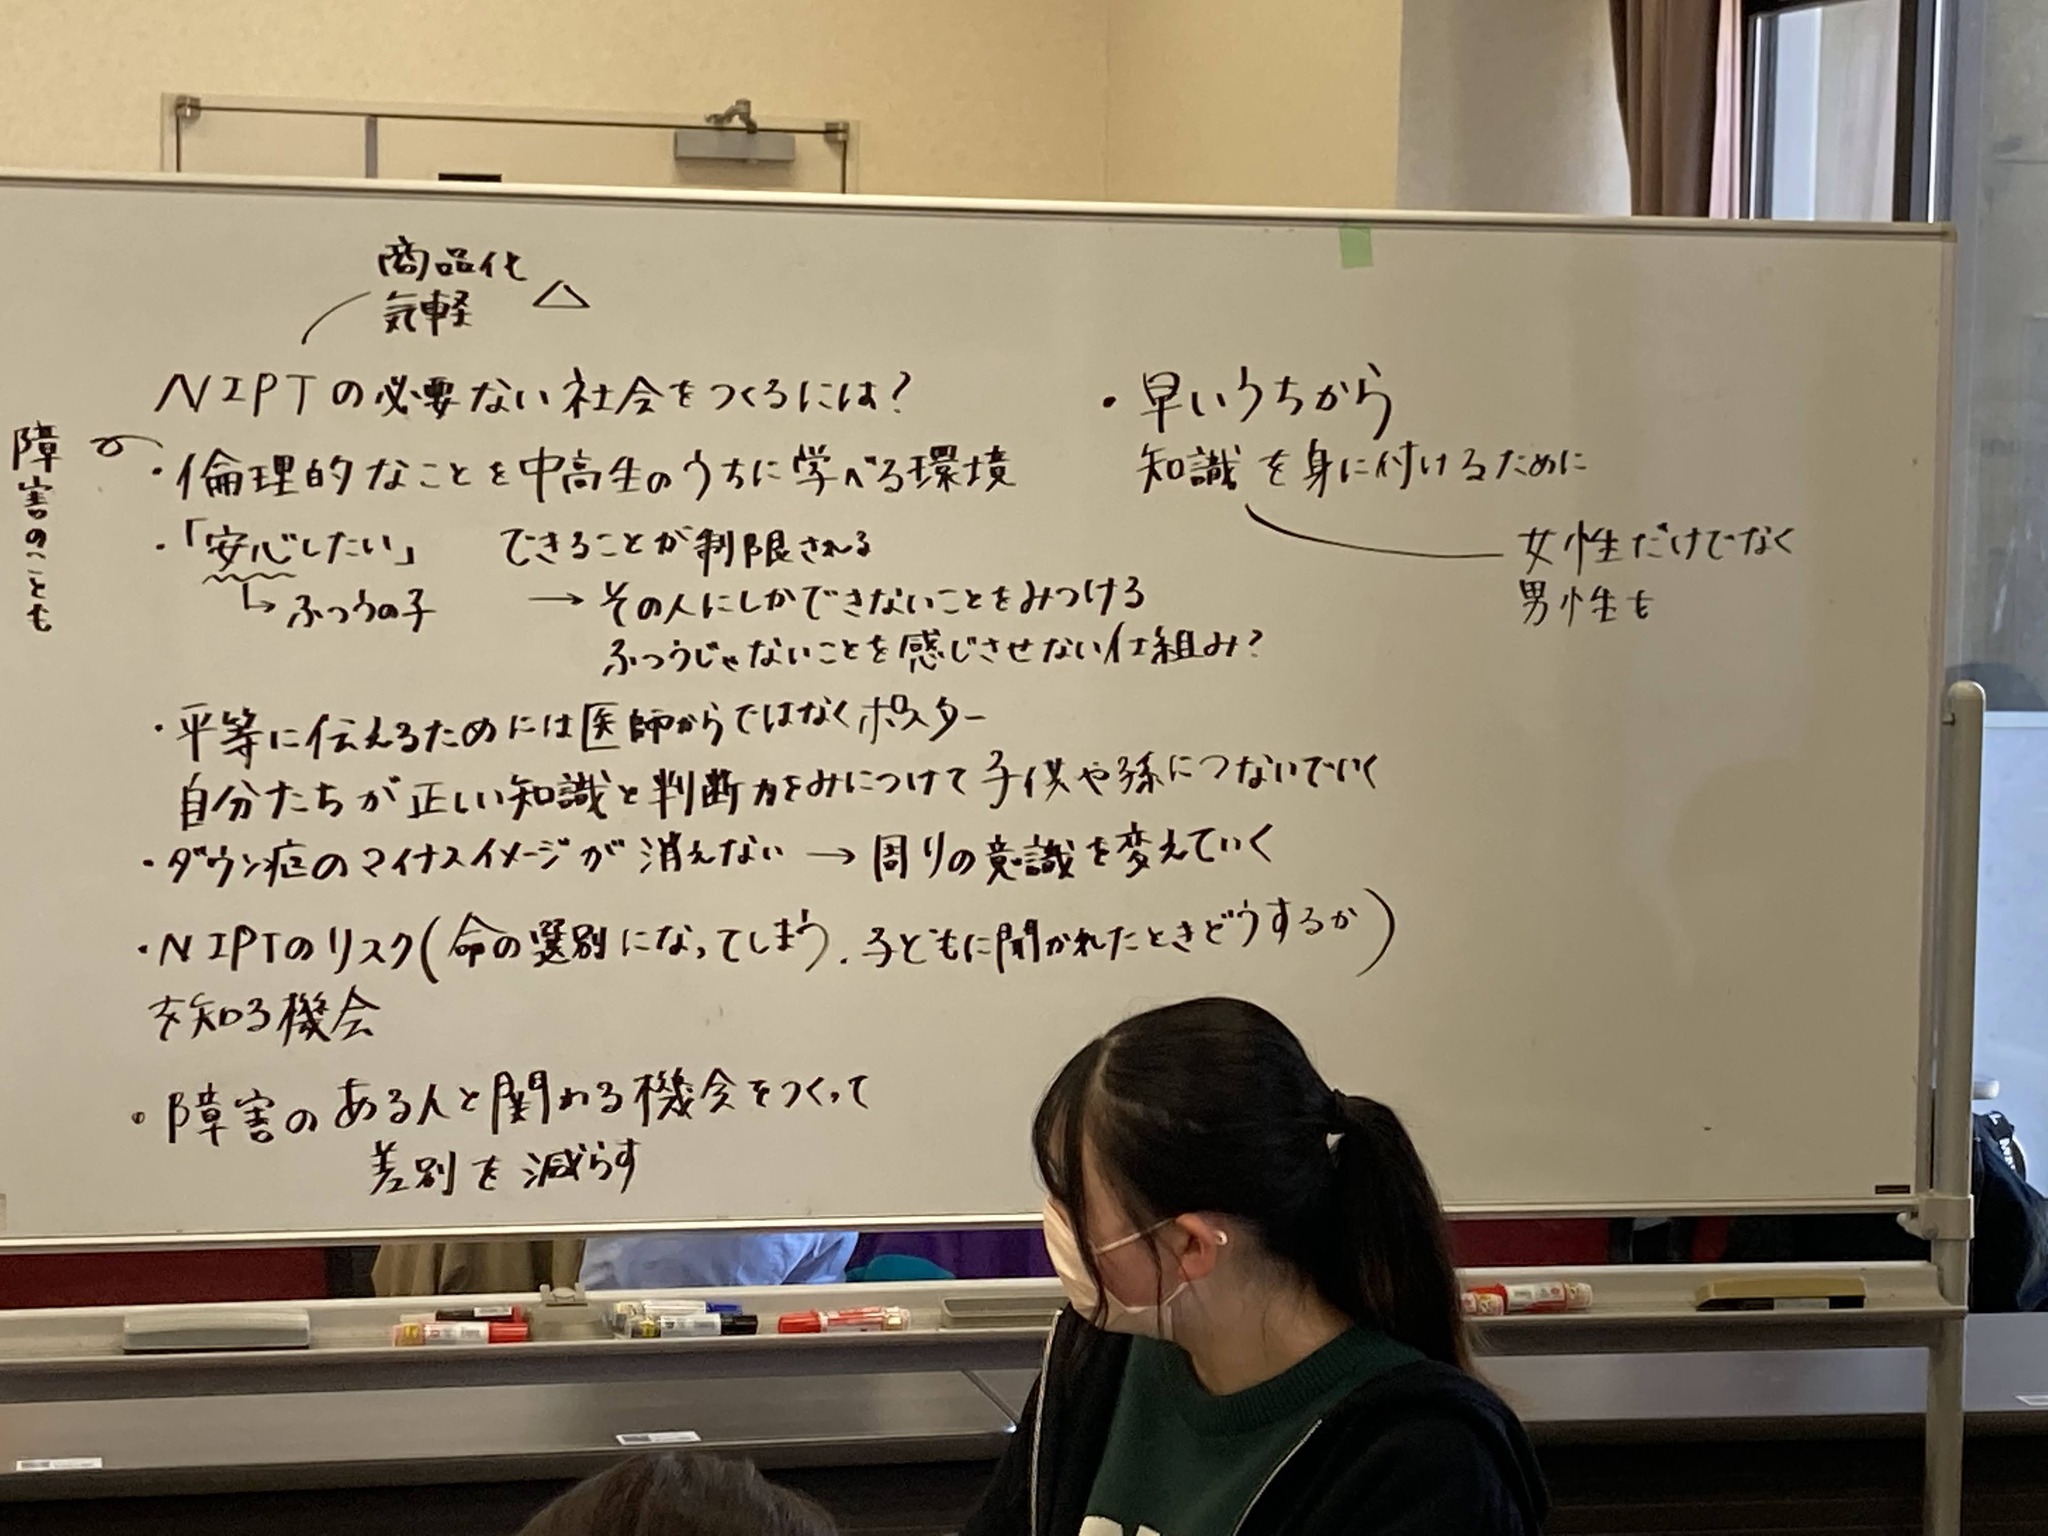 商品化
気軽 △
NIPTの必要ない社会をつくるには?
障害のことも
・倫理的なことを中高生のうちに学べる環境
・「安心したい」 できることが制限される
↳ふつうの子 → その人にしかできないことをみつける
ふつうじゃないことを感じさせない仕組み?
・平等に伝えるためには医師からではなくポスター
自分たちが正しい知識と判断力をみにつけて子供や孫につないでいく
・ダウン症のマイナスイメージが消えない → 周りの意識を変えていく
・NIPTのリスク(命の選別になってしまう.子どもに聞かれたときどうするか)
を知る機会
・障害のある人と関わる機会をつくって
差別を減らす
・早いうちから
知識を身に付けるために
女性だけでなく
男性も